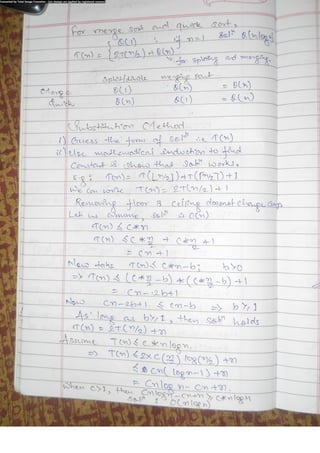 For merge sort and quick sort,
T(n) = { θ(1) ; if n=1 Solⁿ θ(nlogn)
2T(n/2) + θ(n)
for splitting and merging.
split/divide merging sort
Merge θ(1) θ(n) = θ(n)
Quick θ(n) θ(1) = θ(n)
Substitution Method
i) Guess the form of solⁿ i.e T(n)
ii) Use mathematical induction to find
constant & show that solⁿ works.
e.g: T(n) = T(⌊n/2⌋) + T(⌈n/2⌉) + 1
We can write T(n) = 2T(n/2) + 1
Removing floor & ceiling doesnot change
Let us assume, solⁿ is O(n)
T(n) ≤ c*n
T(n) ≤ c*n/2 + c*n/2 + 1
= cn + 1
Now take T(n) ≤ c*n-b; b>0
=> T(n) ≤ (c*n/2 - b) + (c*n/2 - b) + 1
= cn - 2b+1
Now cn-2b+1 ≤ cn-b => b≥1
As long as b≥1, then solⁿ holds
T(n) = 2T(n/2) + n
Assume T(n) ≤ c*nlogn.
=> T(n) ≤ 2xC(n/2) log(n/2) + n
≤ cn(logn-1) + n
= cnlogn - cn + n.
When c>1, then cnlogn-cn+n
solⁿ is O(nlogn)